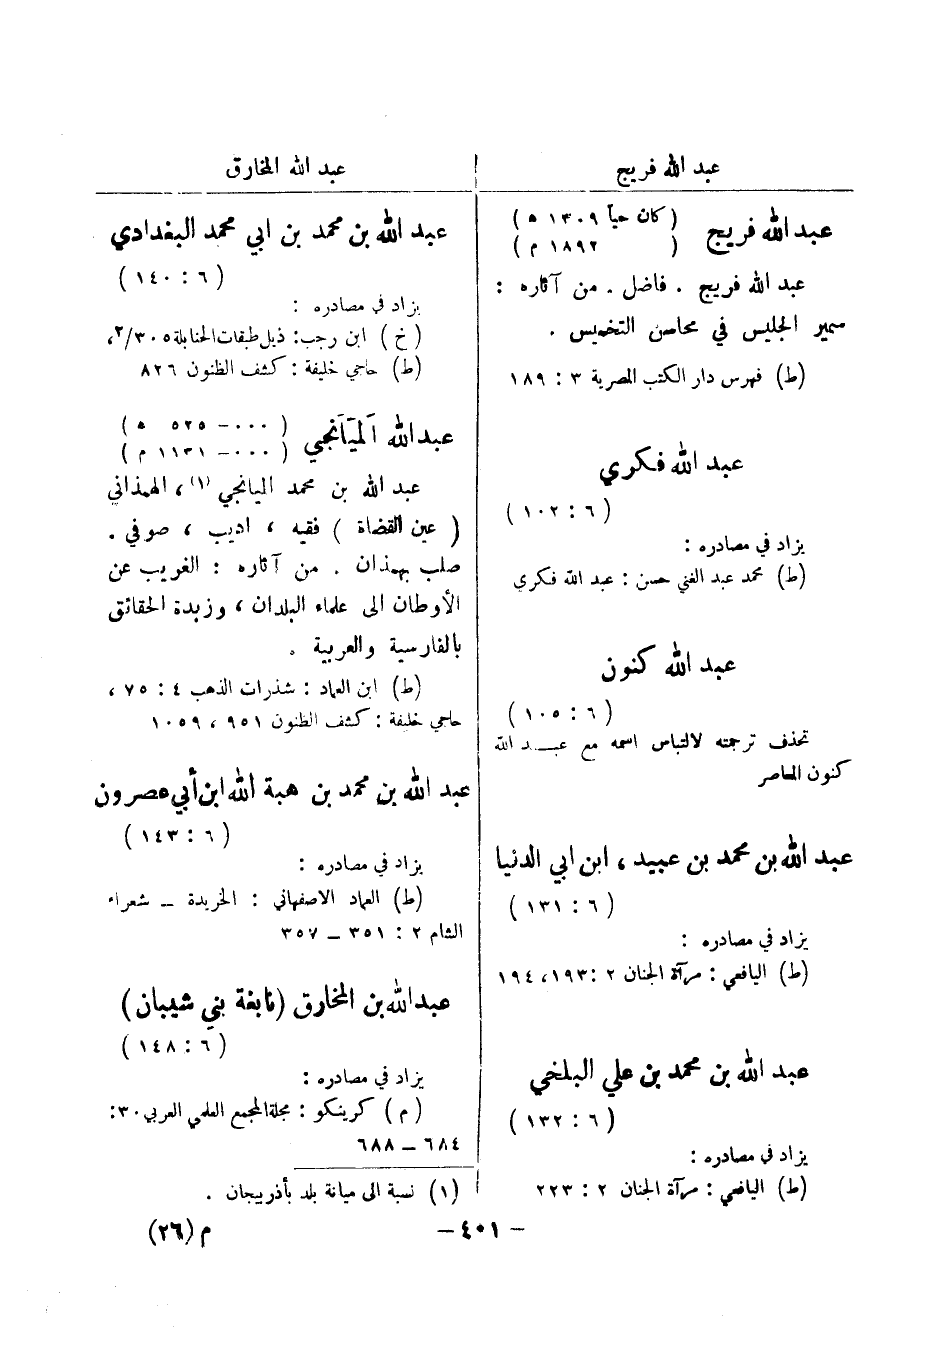 عبد الله فريج
عبد الله المخارق
عبد الله فريج (كان حياً ١٣٠٩ ه)
( ١٨٩٢ م)
عبد الله فريج . فاضل . من آثاره :
سمير الجليس في محاسن التخميس .
(ط) فهرس دار الكتب المصرية ٣ : ١٨٩
عبد الله فكري
(٦ : ١٠٢)
يزاد في مصادره :
(ط) محمد عبد الغني حسن : عبد الله فكري
عبد الله كنون
(٦ : ١٠٥)
تحذف ترجمته لالتباس اسمه مع عبد الله
كنون المعاصر
عبد الله بن محمد بن عبيد ، ابن ابي الدنيا
(٦ : ١٣١)
يزاد في مصادره :
(ط) اليافعي : مرآة الجنان ٢ : ١٩٣، ١٩٤
عبد الله بن محمد بن علي البلخي
(٦ : ١٣٢)
يزاد في مصادره :
(ط) اليافعي : مرآة الجنان ٢ : ٢٢٣
عبد الله بن محمد بن ابي محمد البغدادي
(٦ : ١٤٠)
يزاد في مصادره :
(خ) ابن رجب: ذيل طبقات الحنابلة ٣٠٥/٢،
(ط) حاجي خليفة : كشف الظنون ٨٢٦
عبد الله اَلميَآنجي (٠٠٠ – ٥٢٥ ه)
(٠٠٠ – ١١٣١ م)
عبد الله بن محمد الميانجي (١) ، الهمذاني
( عين القضاة ) فقيه ، اديب ، صوفي .
صلب بهمذان . من آثاره : الغريب عن
الأوطان الى علماء البلدان ، وزبدة الحقائق
بالفارسية والعربية .
(ط) ابن العماد : شذرات الذهب ٤ : ٧٥ ،
حاجي خليفة : كشف الظنون ٩٥١ ، ١٠٥٩
عبد الله بن محمد بن هبة الله ابن أبي عصرون
(٦ : ١٤٣)
يزاد في مصادره :
(ط) العماد الاصفهاني : الخريدة – شعراء
الشام ٢ : ٣٥١ – ٣٥٧
عبد الله بن المخارق (نابغة بني شيبان)
(٦ : ١٤٨)
يزاد في مصادره :
(م) كرينكو : مجلة المجمع العلمي العربي ٣٠ :
٦٨٤ – ٦٨٨
(١) نسبة الى ميانة بلد بأذربيجان .
– ٤٠١ –
م (٢٦)